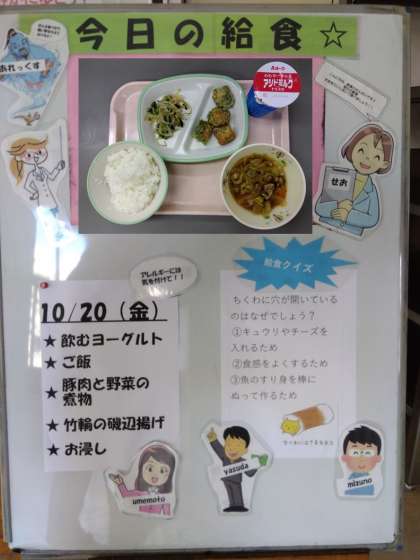 今日の給食☆
あれっくす
せお
アシドミルク
アレルギーには
気を付けて！！
10/20（金）
★ 飲むヨーグルト
★ ご飯
★ 豚肉と野菜の
煮物
★ 竹輪の磯辺揚げ
★ お浸し
給食クイズ
ちくわに穴が開いている
のはなぜでしょう？
①キュウリやチーズを
入れるため
②食感をよくするため
③魚のすり身を棒に
ぬって作るため
umemoto
yasuda
mizuno